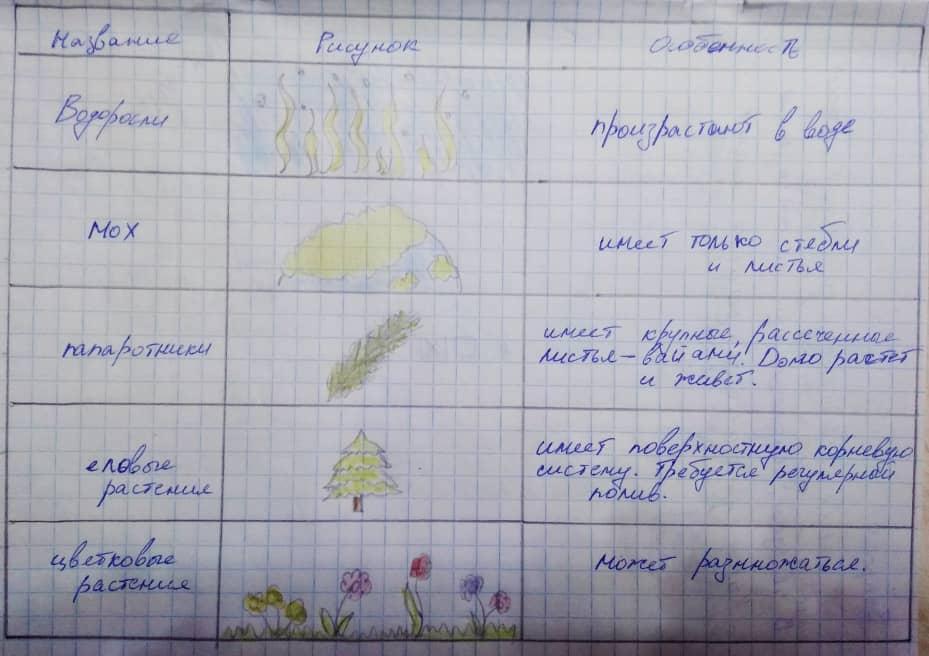 Название
Рисунок
Особенность
Водоросли
произрастают в воде
Мох
имеет только стебли
и листья
папаротники
имеет крупные, рассеченные
листья-вайами. Долго растет
и живет.
еловые
растения
имеет поверхностную корневую
систему. Требуется регулярный
полив.
цветковые
растения
может размножаться.